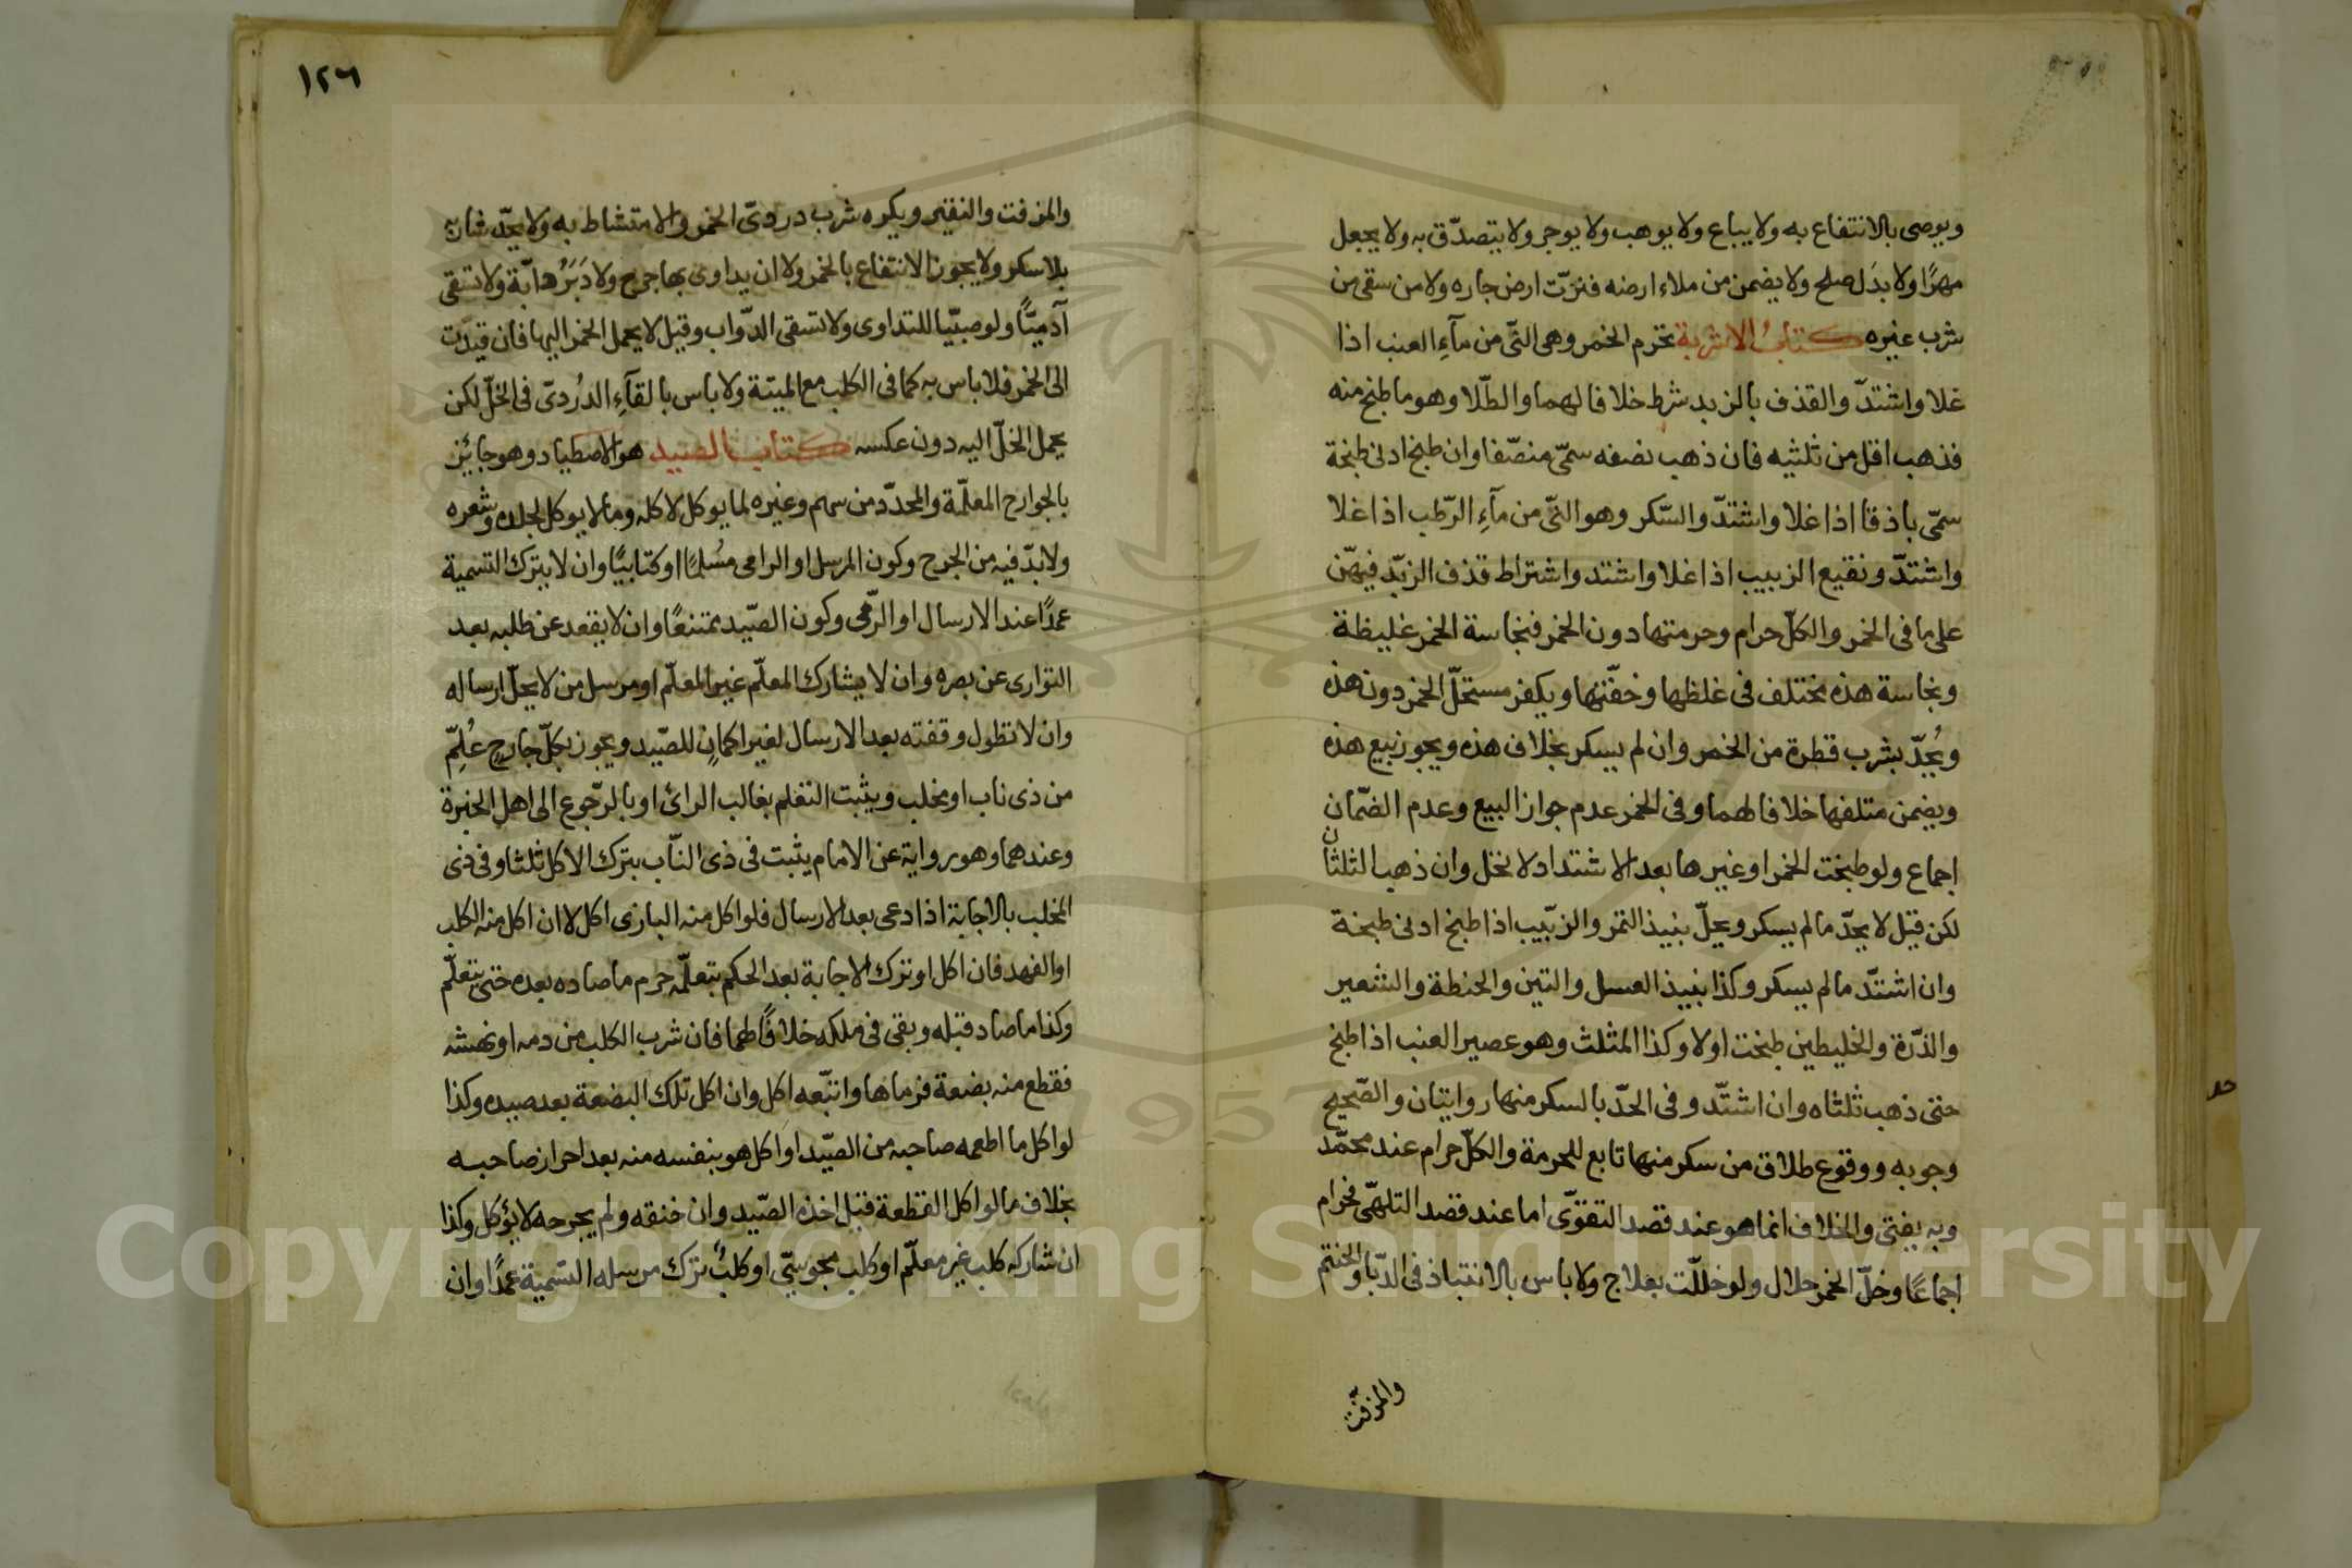 ويوصى بالانتفاع به ولا يباع ولا يوهب ولا يوجر ولا يتصدّق به ولا يجعل
مهرًا ولا بدَل صلح ولا يضمن من ملاء ارضه فنزّت ارض جاره ولا من سقى من
شرب غيره كتابُ الاشربة تحرم الخمر وهى النّى من مآءِ العنب اذا
غلا واشتدّ والقذف بالزبد شرط خلافا لهما والطّلا وهو ما طبخ منه
فذهب اقل من ثلثيه فان ذهب نصفه سمّى منصّفا وان طبخ ادنى طبخة
سمّى باذقا اذا غلا واشتدّ والسّكر وهو النّى من مآءِ الرّطب اذا غلا
واشتدّ ونقيع الزبيب اذا غلا واشتد واشتراط قذف الزبّد فيهّن
على ما فى الخمر والكلّ حرام وحرمتها دون الخمر فنجاسة الخمر غليظة
ونجاسة هذه مختلف فى غلظها وخفّتها ويكفر مستحلّ الخمر دون هذه
ويُحدّ بشرب قطرة من الخمر وان لم يسكر بخلاف هذه ويجوز بيع هذه
ويضمن متلفها خلافا لهما وفى الخمر عدم جواز البيع وعدم الضّمان
اجماع ولو طبخت الخمر او غيرها بعد الاشتداد لا تحل وان ذهب الثلثان
لكن قيل لا يحدّ ما لم يسكر ويحلّ نبيذ التمر والزبّيب اذا طبخ ادنى طبخة
وان اشتدّ ما لم يسكر وكذا نبيذ العسل والتين والحنطة والشعير
والذّرة والخليطين طبخت اولا وكذا المثلث وهو عصير العنب اذا طبخ
حتى ذهب ثلثاه وان اشتّد وفى الحدّ بالسكر منها روايتان والصّحيح
وجوبه ووقوع طلاق من سكر منها تابع للحرمة والكلّ حرام عند محمّد
وبه يفتى والخلاف انما هو عند قصد التقوّى اما عند قصد التلهّى فحرام
اجماعًا وخلّ الخمر حلال ولو خللّت بعلاج ولا باس بالانتباذ فى الدبّا والحنتم
والمزفّت
١٢٦
والمزفت والنقير ويكره شرب دردىّ الخمر والامتشاط به ولا يحدّ شاربه
بلا سكر ولا يجوز الانتفاع بالخمر ولا ان يداوى بها جرح ولا دَبَرُ دابّة ولا تسقى
آدميًّا ولو صبّيا للتداوى ولا تسقى الدّواب وقيل لا يحمل الخمر اليها فان قيدّت
الى الخمر فلا باس به كما فى الكلب مع الميتة ولا باس بالقآءِ الدُردىّ فى الخلّ لكن
يحمل الخلّ اليه دون عكسه كتاب الصيد هو الاصطياد وهو جايئز
بالجوارح المعلّمة والمحدّد من سهم وغيره لما يوكل لاكله وما لا يوكل لجلده وشعره
ولا بدّ فيه من الجرح وكون المرسل او الرامى مسُلمًا او كتابيًا وان لا يترك التسمية
عمدًا عند الارسال او الرّمى وكون الصّيد ممتنعًا وان لا يقعد عن طلبه بعد
التوارى عن بصره وان لا يشارك المعلّم غير المعلّم او مرسل من لا يحلّ ارساله
وان لا تطول وقفته بعد الارسال لغير اكمانٍ للصّيد ويجوز بكلّ جارحٍ عُلِمّ
من ذى ناب او مخلب ويثبت التعلم بغالب الرائ او بالرّجوع الى اهل الخبرة
وعندهما وهو رواية عن الامام يثبت فى ذى النّاب بترك الاكل ثلثا وفى ذى
المخلب بالاجابة اذا دعى بعد الارسال فلو اكل منه البازى اكل لا ان اكل منه الكلب
او الفهد فان اكل او ترك الاجابة بعد الحكم بتعلّمه حرم ما صاده بعده حتى يتعلّم
وكذا ما صاد قبله وبقى فى ملكه خلافًا لهما فان شرب الكلب من دمه او نهشه
فقطع منه بضعة فرماها واتبّعه اكل وان اكل تلك البضعة بعد صيده وكذا
لو اكل ما اطعمه صاحبه من الصيّد او اكل هو بنفسه منه بعد احراز صاحبه
بخلاف ما لو اكل القطعة قبل اخذه الصّيد وان خنقه ولم يجرحه لا يؤكل وكذا
ان شاركه كلب غير معلّم او كلب مجوسّى او كلبٌ ترك مرسله التسمية عمدًا وان
Copyright © King Saud University
1957